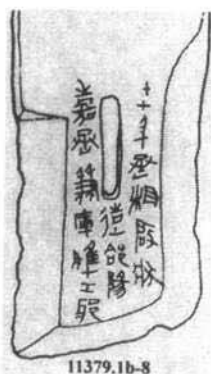 十七年丞相啟狀
造郃陽
嘉丞兼庫脽工邪
11379.1b-8